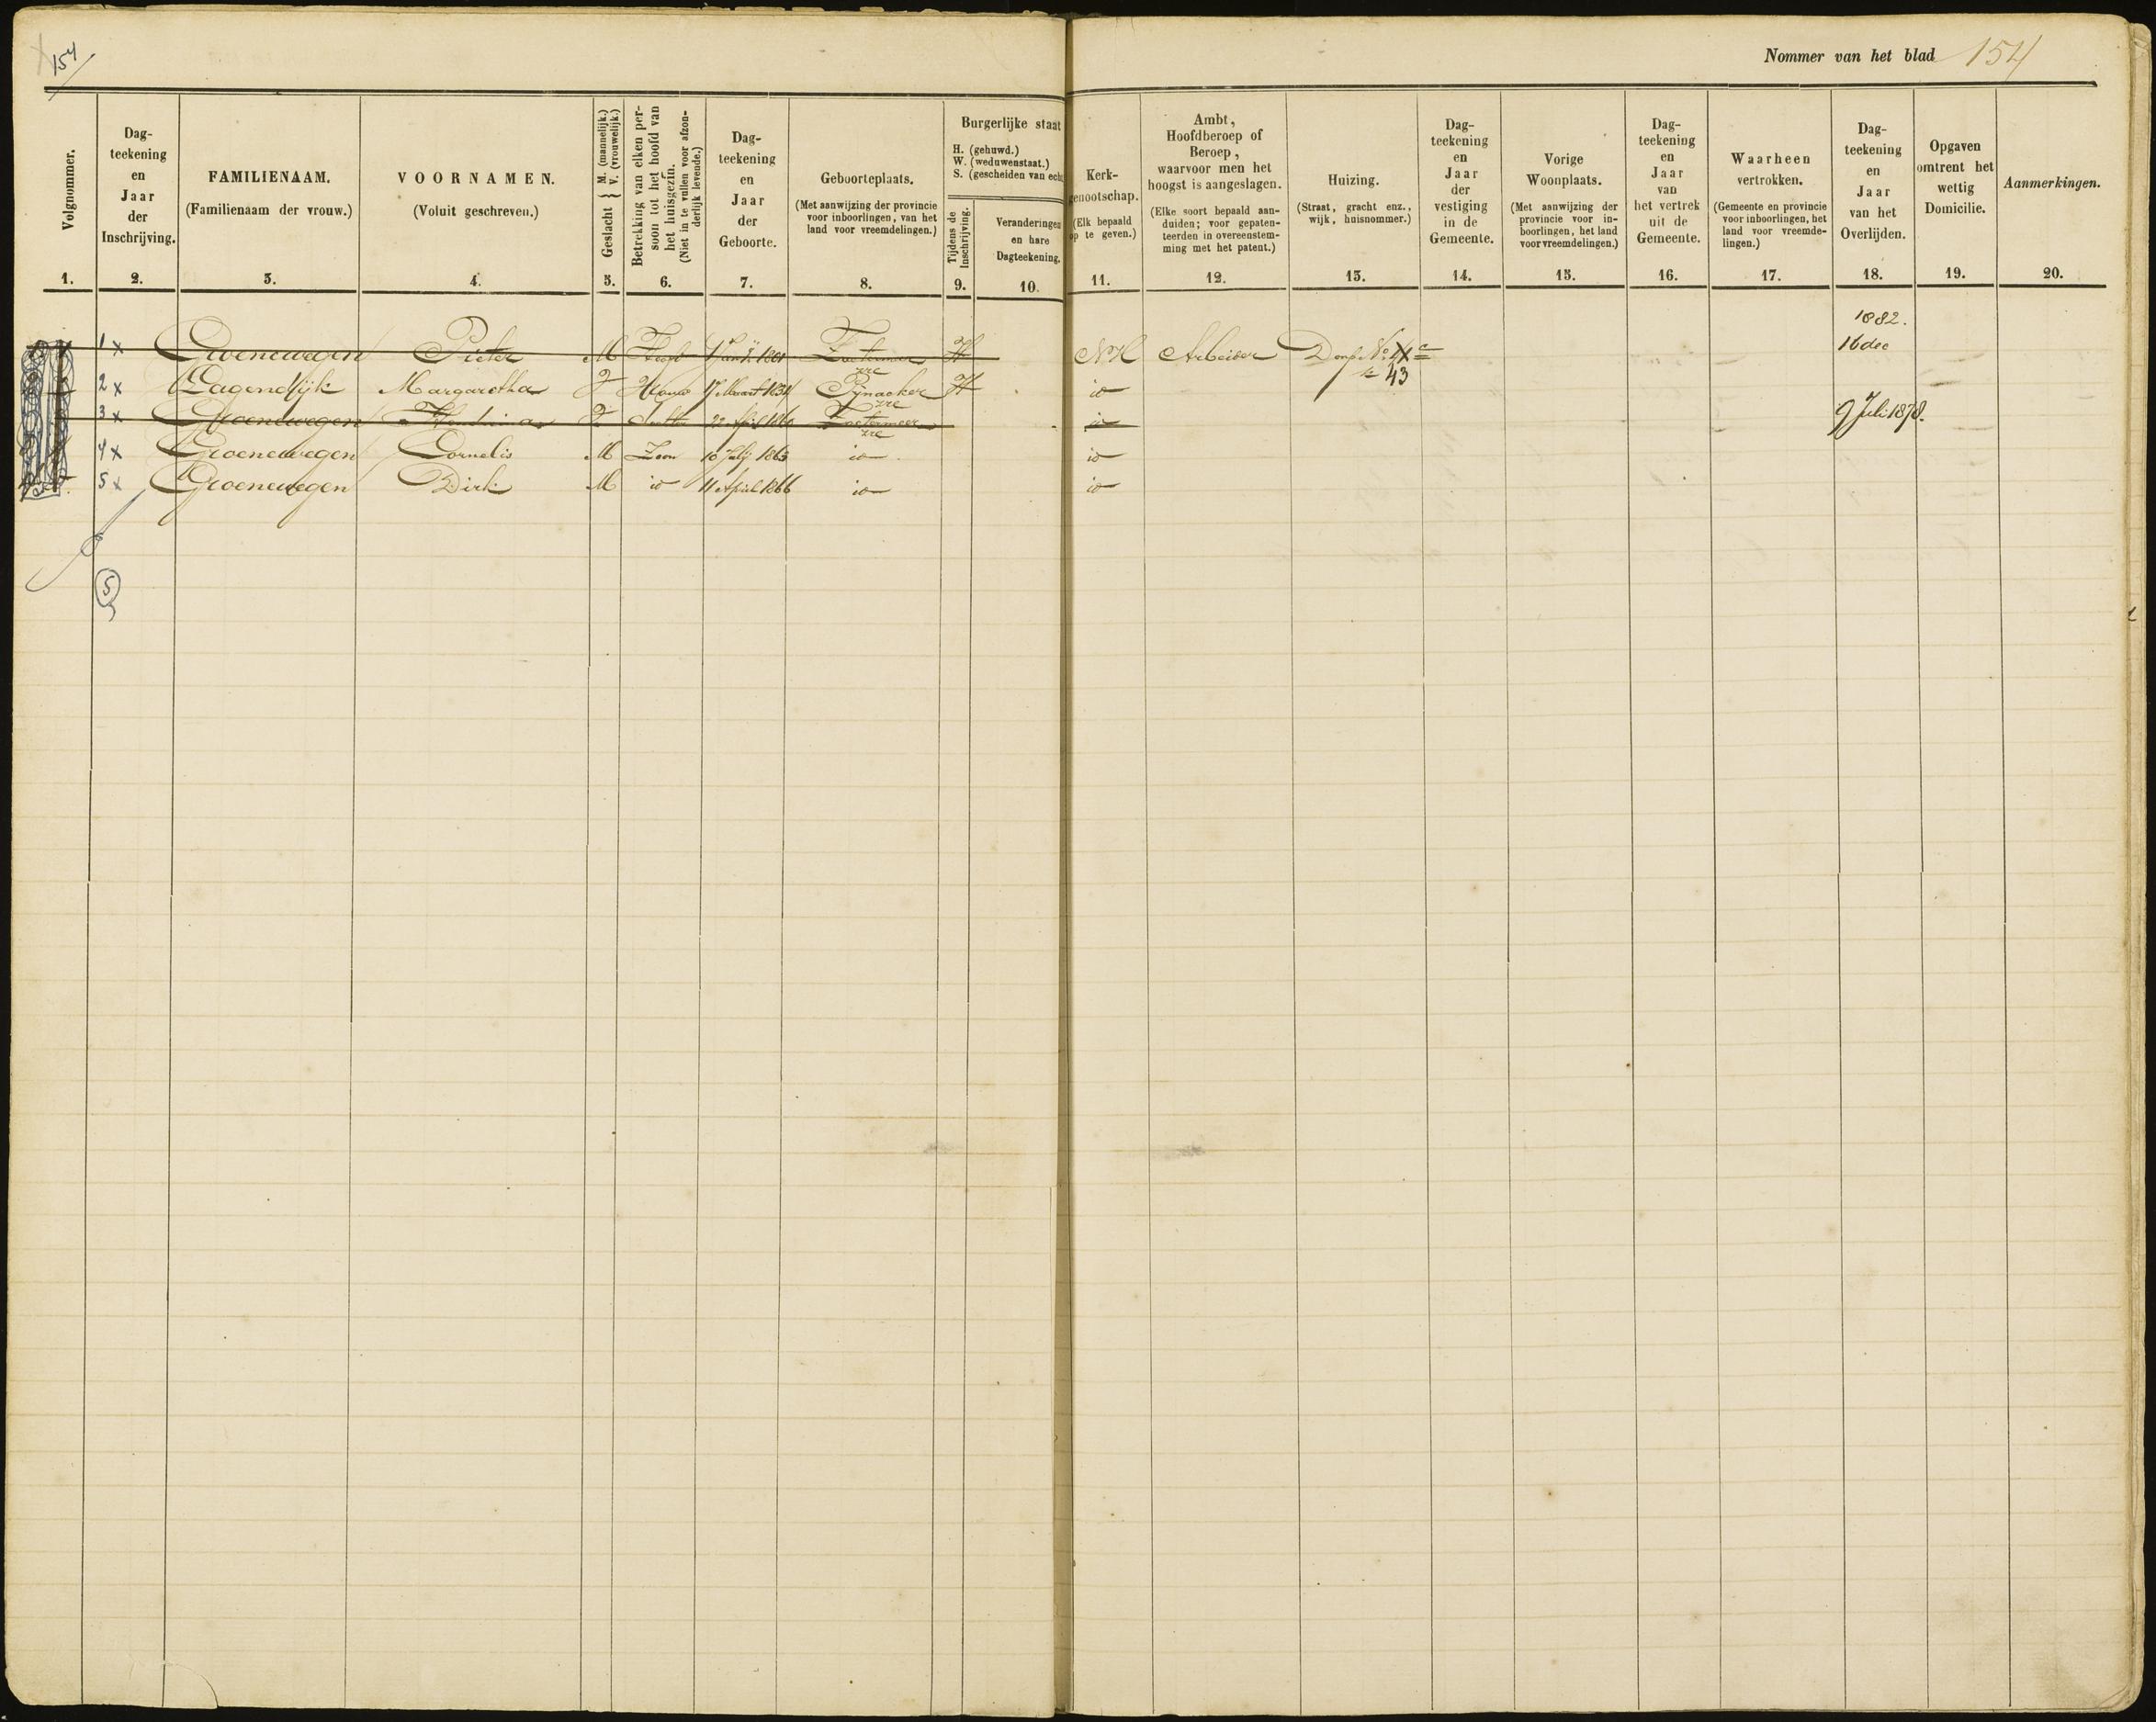 154
Nommer van het blad 154
Volgnommer.
1.
Dag-
teekening
en
Jaar
der
Inschrijving.
2.
FAMILIENAAM.
(Familienaam der vrouw.)
3.
VOORNAMEN.
(Voluit geschreven.)
4.
Geslacht { M. (mannelijk.)
V. (vrouwelijk.)
5.
Betrekking van elken per-
soon tot het hoofd van
het huisgezin.
(Niet in te vullen voor afzon-
derlijk levende.)
6.
Dag-
teekening
en
Jaar
der
Geboorte.
7.
Geboorteplaats.
(Met aanwijzing der provincie
voor inboorlingen, van het
land voor vreemdelingen.)
8.
Burgerlijke staat
H. (gehuwd.)
W. (weduwenstaat.)
S. (gescheiden van echt
Tijdens de
Inschrijving.
9.
Veranderingen
en hare
Dagteekening.
10.
Kerk-
genootschap.
(Elk bepaald
op te geven.)
11.
Ambt,
Hoofdberoep of
Beroep,
waarvoor men het
hoogst is aangeslagen.
(Elke soort bepaald aan-
duiden; voor gepaten-
teerden in overeenstem-
ming met het patent.)
12.
Huizing.
(Straat, gracht enz.,
wijk, huisnommer.)
13.
Dag-
teekening
en
Jaar
der
vestiging
in de
Gemeente.
14.
Vorige
Woonplaats.
(Met aanwijzing der
provincie voor in-
boorlingen, het land
voor vreemdelingen.)
15.
Dag-
teekening
en
Jaar
van
het vertrek
uit de
Gemeente.
16.
Waarheen
vertrokken.
(Gemeente en provincie
voor inboorlingen, het
land voor vreemde-
lingen.)
17.
Dag-
teekening
en
Jaar
van het
Overlijden.
18.
Opgaven
omtrent het
wettig
Domicilie.
19.
Aanmerkingen.
20.
1 x Groenewegen Pieter M Hoofd H NH Arbeider Dorp No 1882.
16 dec
43
2 x Dagendijk Margaretha V Vrouw 17 Maart 1834 Pijnacker H io
3 x Groenewegen V 22 April 1860 Zoetermeer io 9 Juli 1878.
4 x Groenewegen Cornelis M Zoon 10 July 1863 io io
5 x Groenewegen Dirk M io 11 April 1866 io io
5